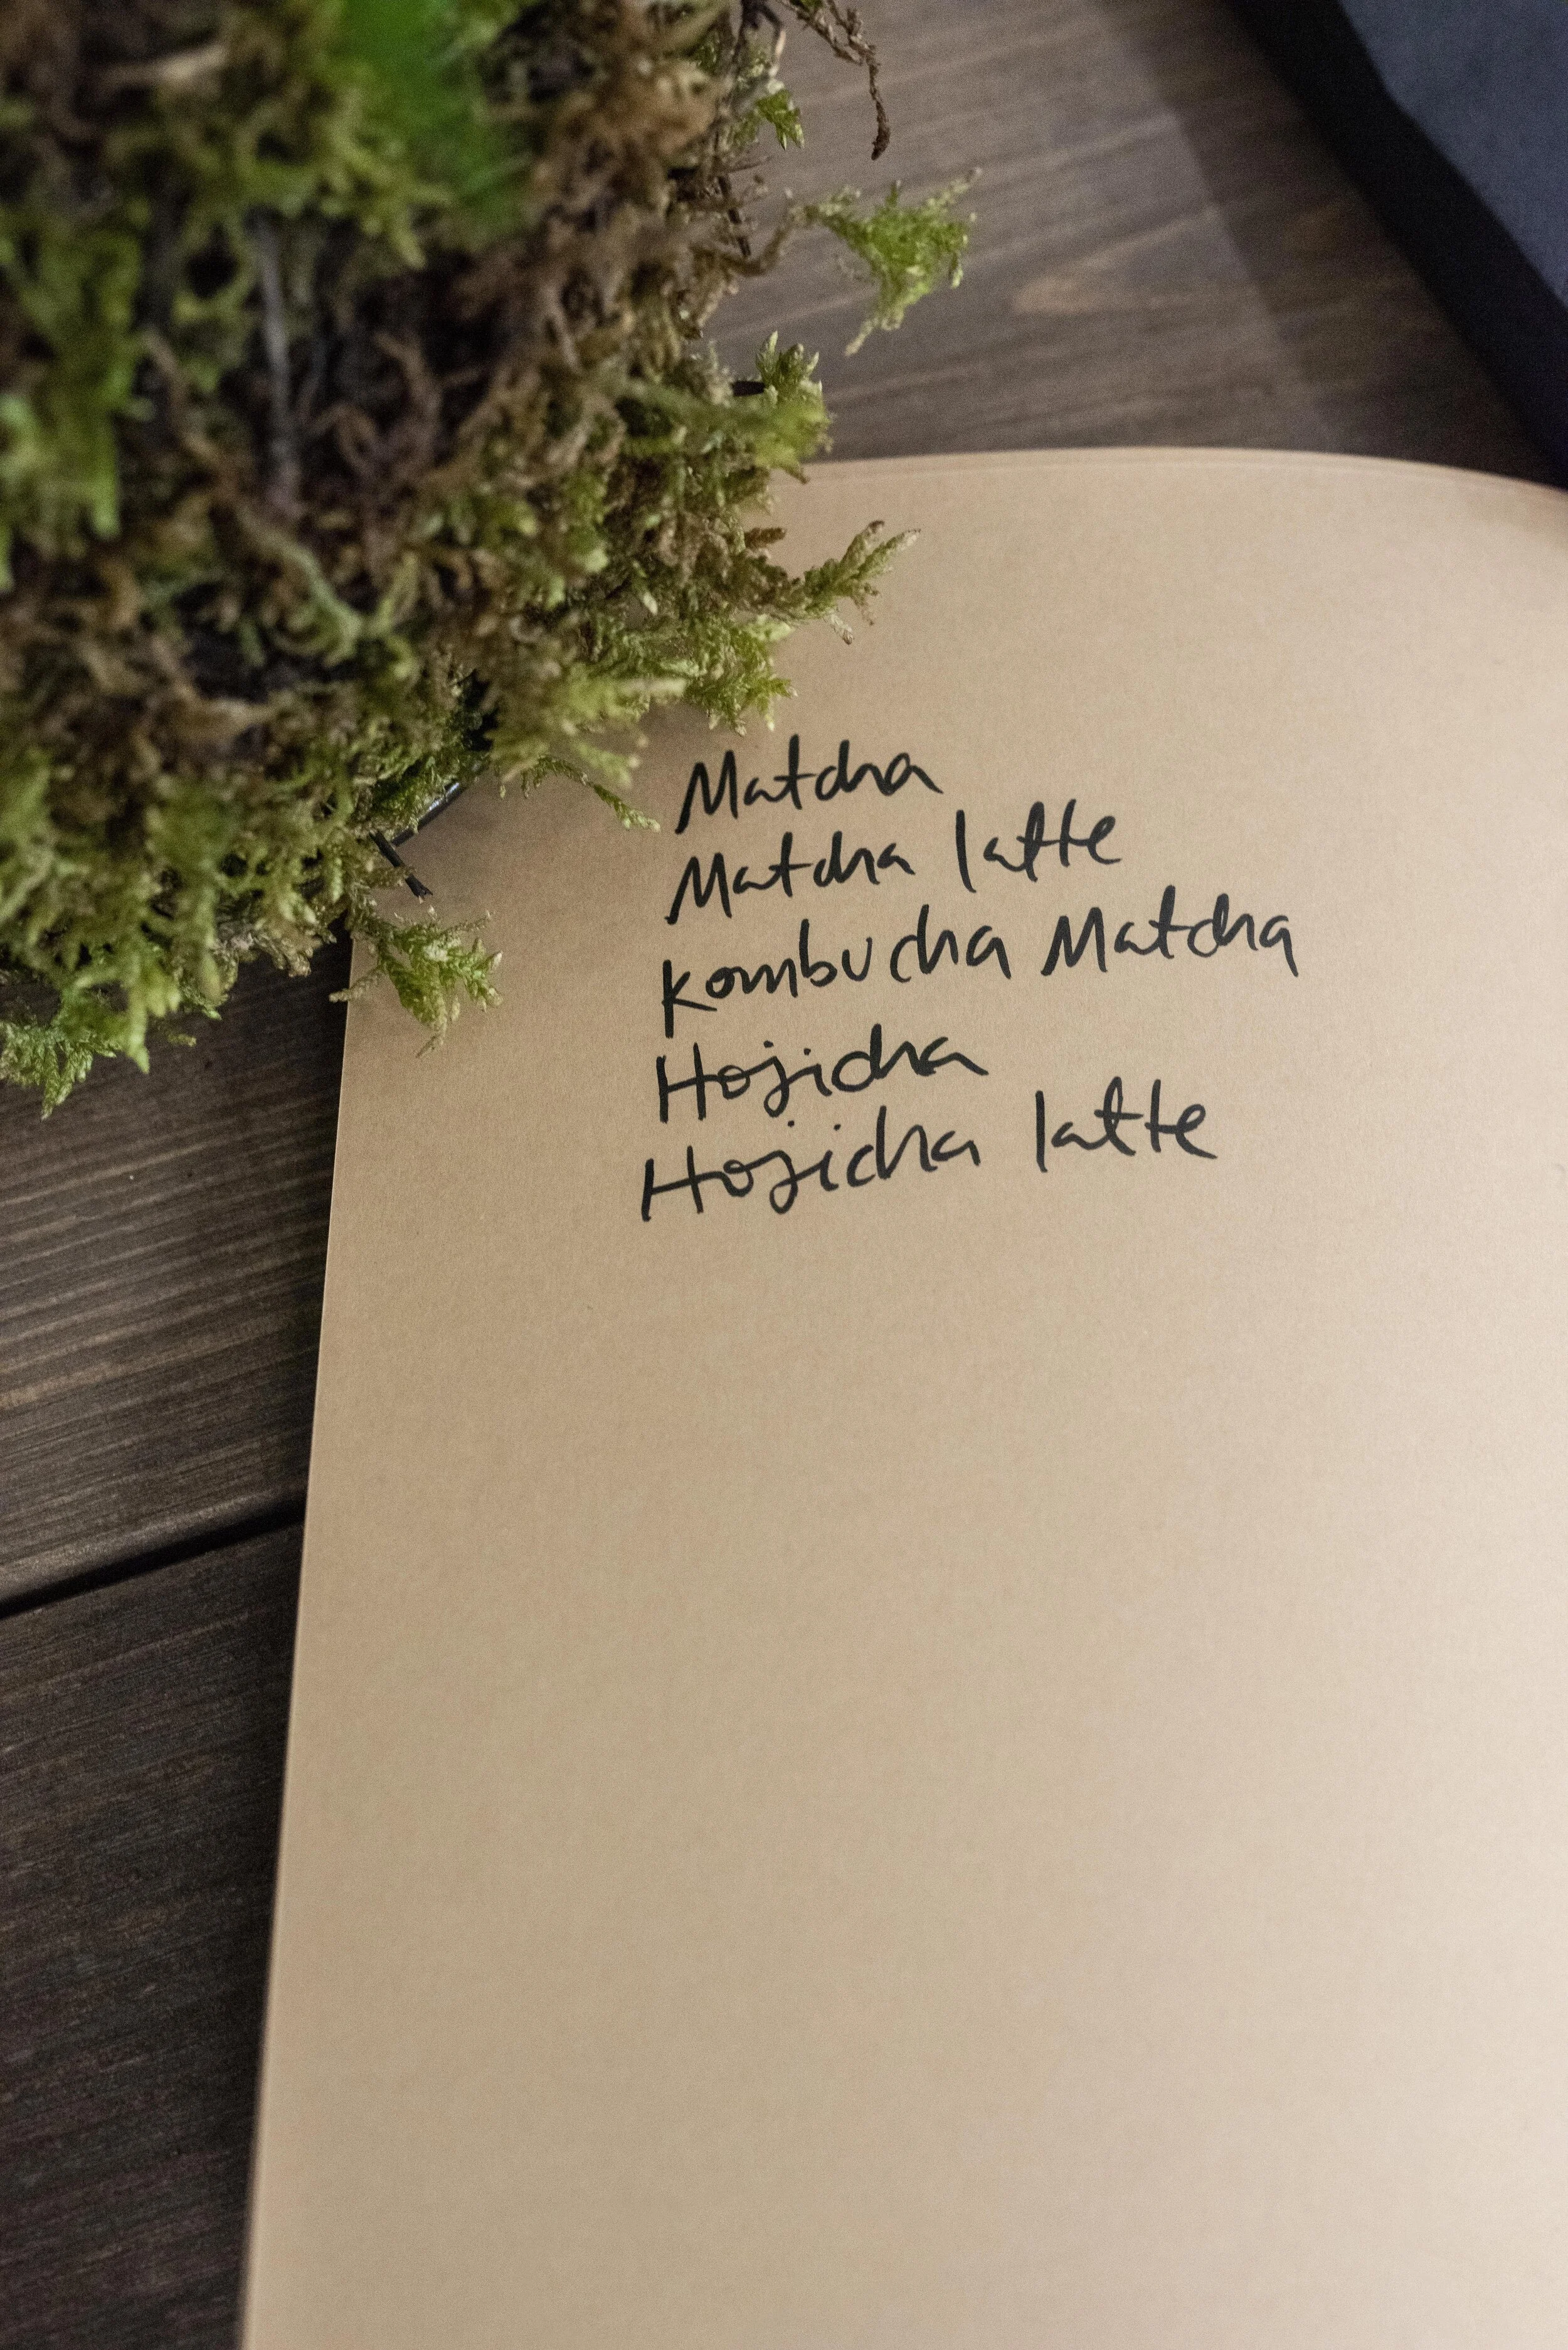 Matcha
Matcha latte
Kombucha Matcha
Hojicha
Hojicha latte